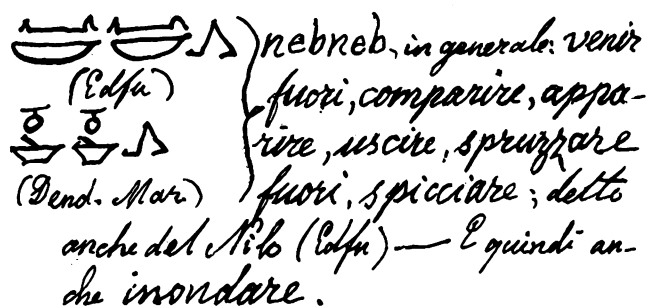 nebneb, in generale: venir
(Edfu)
fuori, comparire, appa-
rire, uscire, spruzzare
(Dend. Mar.) fuori, spicciare; detto
anche del Nilo (Edfu) — E quindi an-
che inondare.